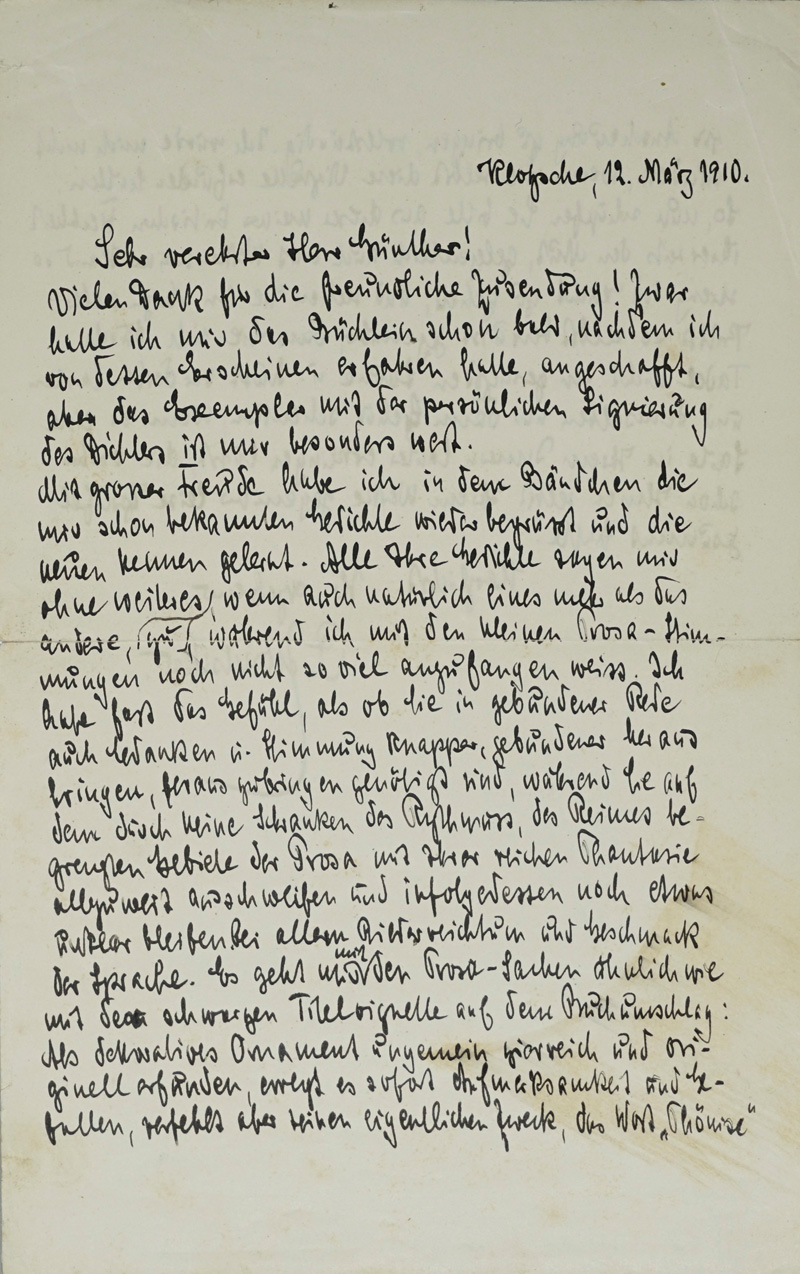 Klotzsche, 12. März 1910.
Sehr verehrter Herr Günther!
Vielen Dank für die freundliche Zusendung! Zwar
hatte ich mir das Büchlein schon bald, nachdem ich
von dessen Erscheinen erfahren hatte, angeschafft,
aber das Exemplar mit der persönlichen Signierung
des Dichters ist mir besonders wert.
Mit grosser Freude habe ich in dem Bändchen die
mir schon bekannten Gedichte wieder begrüsst und die
neuen kennen gelernt. Alle Ihre Gedichte sagen mir
ohne weiteres, wenn auch natürlich eines mehr als das
andere, zu, während ich mit den kleinen Prosa-Stim-
mungen noch nicht so viel anzufangen weiss. Ich
habe fast das Gefühl, als ob Sie in gebundener Rede
auch Gedanken u. Stimmung knapper, gebundener heraus
bringen, herauszubringen genötigt sind, während Sie auf
dem durch keine Schranken des Rythmus, des Reimes be-
grenzten Gebiete der Prosa mit Ihrer reichen Phantasie
allzuweit ausschweifen und infolgedessen noch etwas
unklar bleiben bei allem Bilderreichtum und Geschmack
der Sprache. Es geht mir mit den Prosa-Sachen ähnlich wie
mit der schwarzen Titelvignette auf dem Buchumschlag:
Als dekoratives Ornament ungemein zierreich und ori-
ginell erfunden, erregt es sofort Aufmerksamkeit und Ge-
fallen, verfehlt aber seinen eigentlichen Zweck, das Wort „Phönixe"